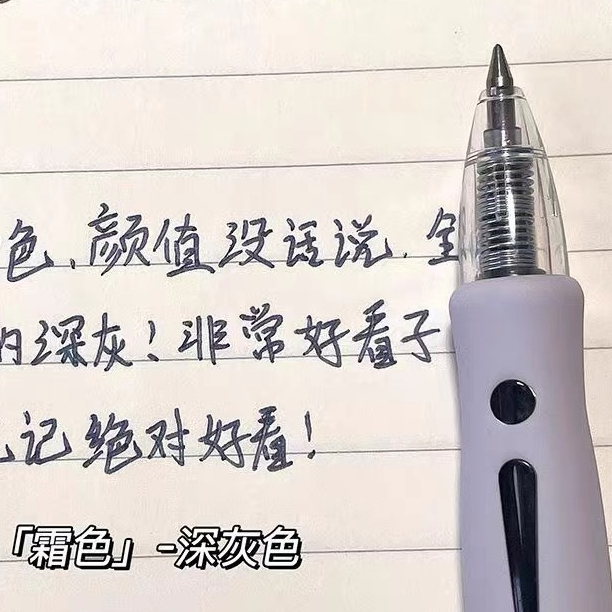 色,颜值没话说.
深灰!非常好看子
记绝对好看!
「霜色」-深灰色